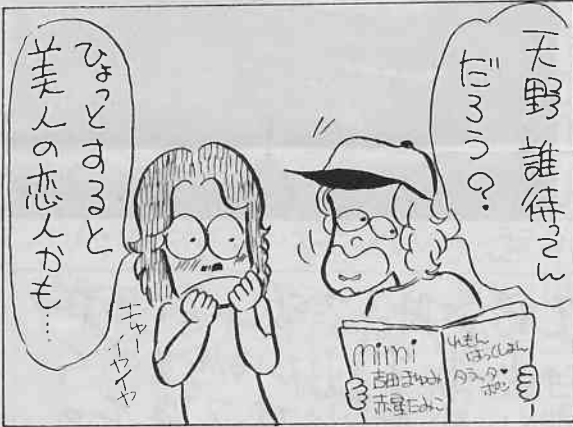 天野 誰待ってん
だろう?
ひょっとすると
美人の恋人かも…
キャー
イヤイヤ
mimi
吉田まゆみ
赤星たみこ
れもん
はっくしょん
タラッタ♥
ポン